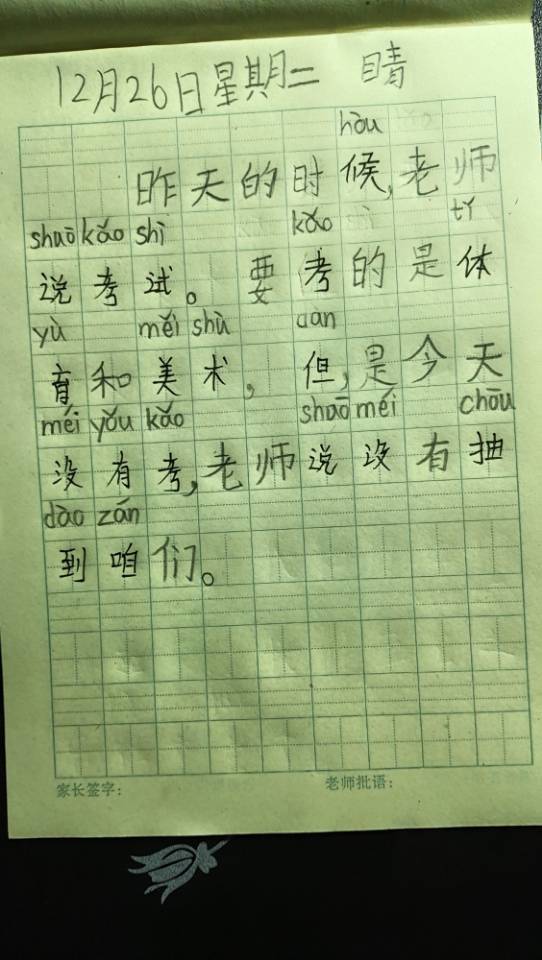 12月26日星期二 晴
hòu
昨天的时候,老师
shuō kǎo shì kǎo tǐ
说考试。要考的是体
yù měi shù dàn
育和美术,但,是今天
méi yǒu kǎo shuō méi chōu
没有考,老师说没有抽
dào zán
到咱们。
家长签字: 老师批语: